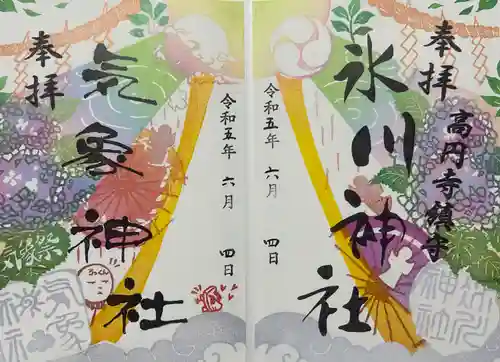 奉拝
高円寺鎮守
氷川神社
令和五年 六月 四日
奉拝
気象神社
令和五年 六月 四日
気象祭
氷川神社
気象神社